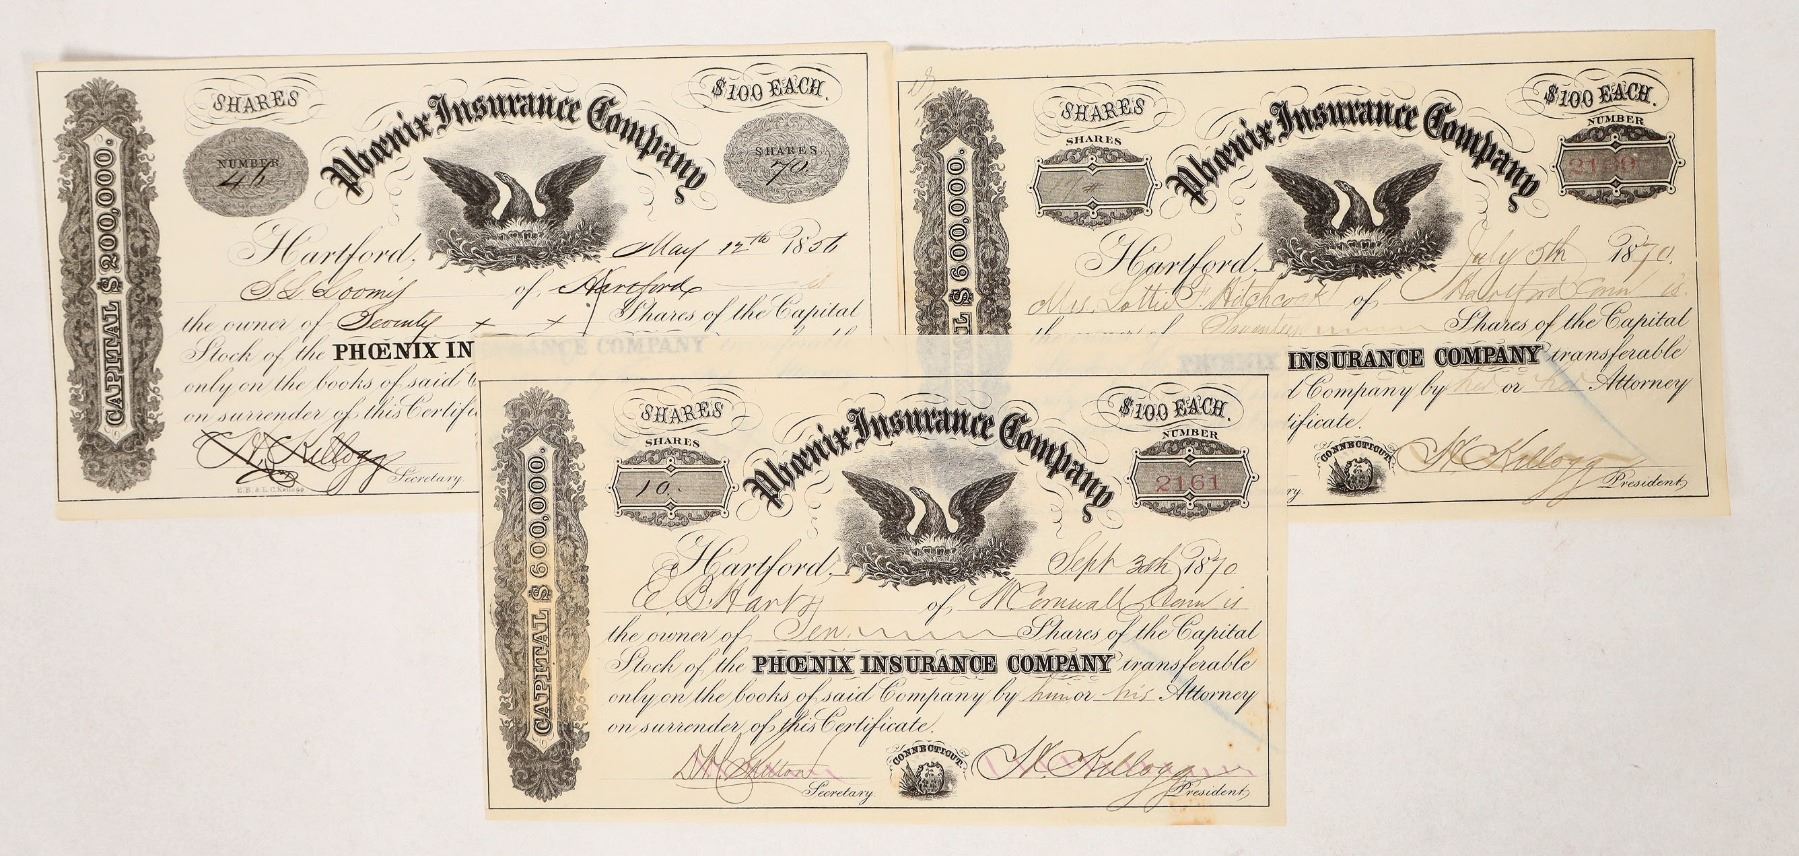 SHARES
$100 EACH.
Phœnix Insurance Company
NUMBER
SHARES
70
CAPITAL $200,000.
Hartford, May 12th 1856
S L Loomis of Hartford is
the owner of Seventy x x Shares of the Capital
Stock of the PHŒNIX IN
only on the books of said C
on surrender of this Certifi
H. Kellogg
Secretary.
E.B. & E.C. Kellogg
SHARES
$100 EACH.
Phœnix Insurance Company
SHARES
NUMBER
17
2130
$600,000.
Hartford, July 5th 1870.
Mrs. Lottie F. Hitchcock of Hartford Conn is
the owner of Seventeen Shares of the Capital
PHŒNIX INSURANCE COMPANY transferable
d Company by her or her Attorney
tificate.
CONNECTICUT.
H Kellogg
ry
President,
SHARES
$100 EACH.
Phœnix Insurance Company
SHARES
NUMBER
10
2161
CAPITAL $600,000.
Hartford, Sept 30th 1870
E. B. Hart of W Cornwall Conn is
the owner of Ten Shares of the Capital
Stock of the PHŒNIX INSURANCE COMPANY transferable
only on the books of said Company by him or his Attorney
on surrender of this Certificate.
CONNECTICUT.
H Kellogg
Secretary.
President,